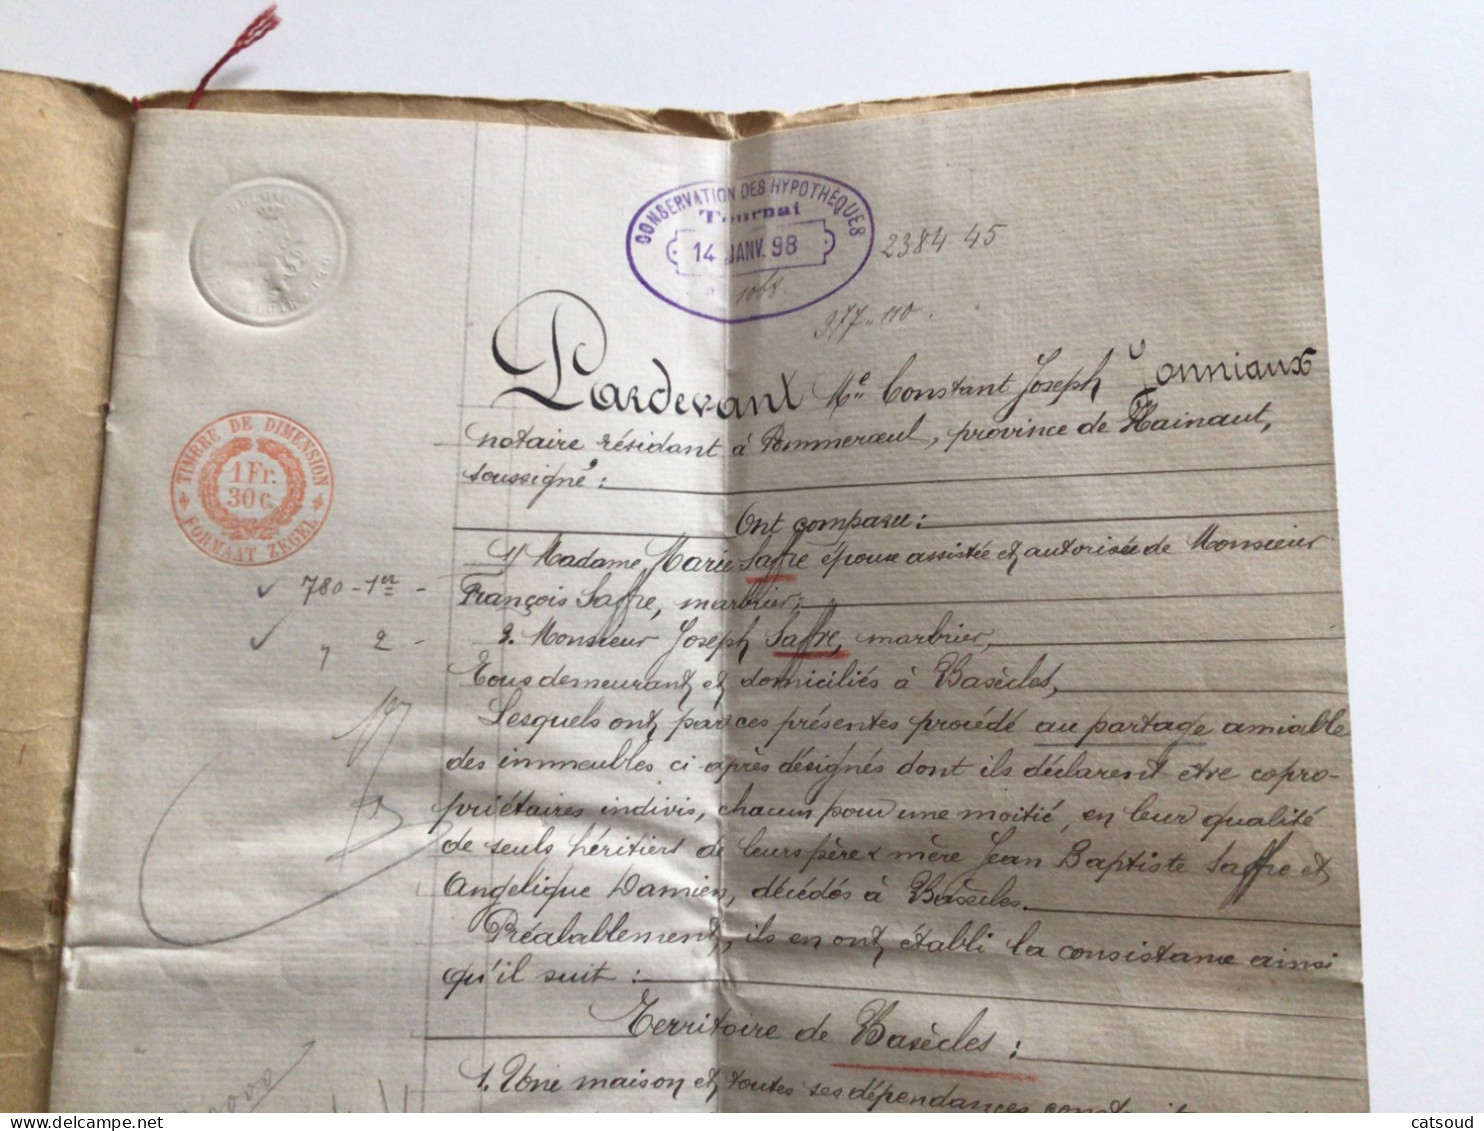 CONSERVATION DES HYPOTHÈQUES
Tournai
14 JANV. 98
1068.
2384 45
977-110.
Pardevant Me Constant Joseph Tonniaux
notaire résidant à Pommerœul, province de Hainaut,
soussigné :
TIMBRE DE DIMENSION
1 Fr.
30 c.
FORMAAT ZEGEL
Ont comparu :
1/ Madame Marie Saffre épouse assistée et autorisée de Monsieur
780 - 1er -
François Saffre, marbrier,
2. Monsieur Joseph Saffre, marbrier,
" 2 -
Tous demeurant et domiciliés à Basècles,
Lesquels ont par ces présentes procédé au partage amiable
des immeubles ci-après désignés dont ils déclarent être copro-
priétaires indivis, chacun pour une moitié, en leur qualité
de seuls héritiers de leurs père & mère Jean Baptiste Saffre et
Angelique Damien, décédés à Basècles.
Préalablement, ils en ont établi la consistance ainsi
qu'il suit :
Territoire de Basècles :
1. Une maison et toutes ses dépendances
catsoud